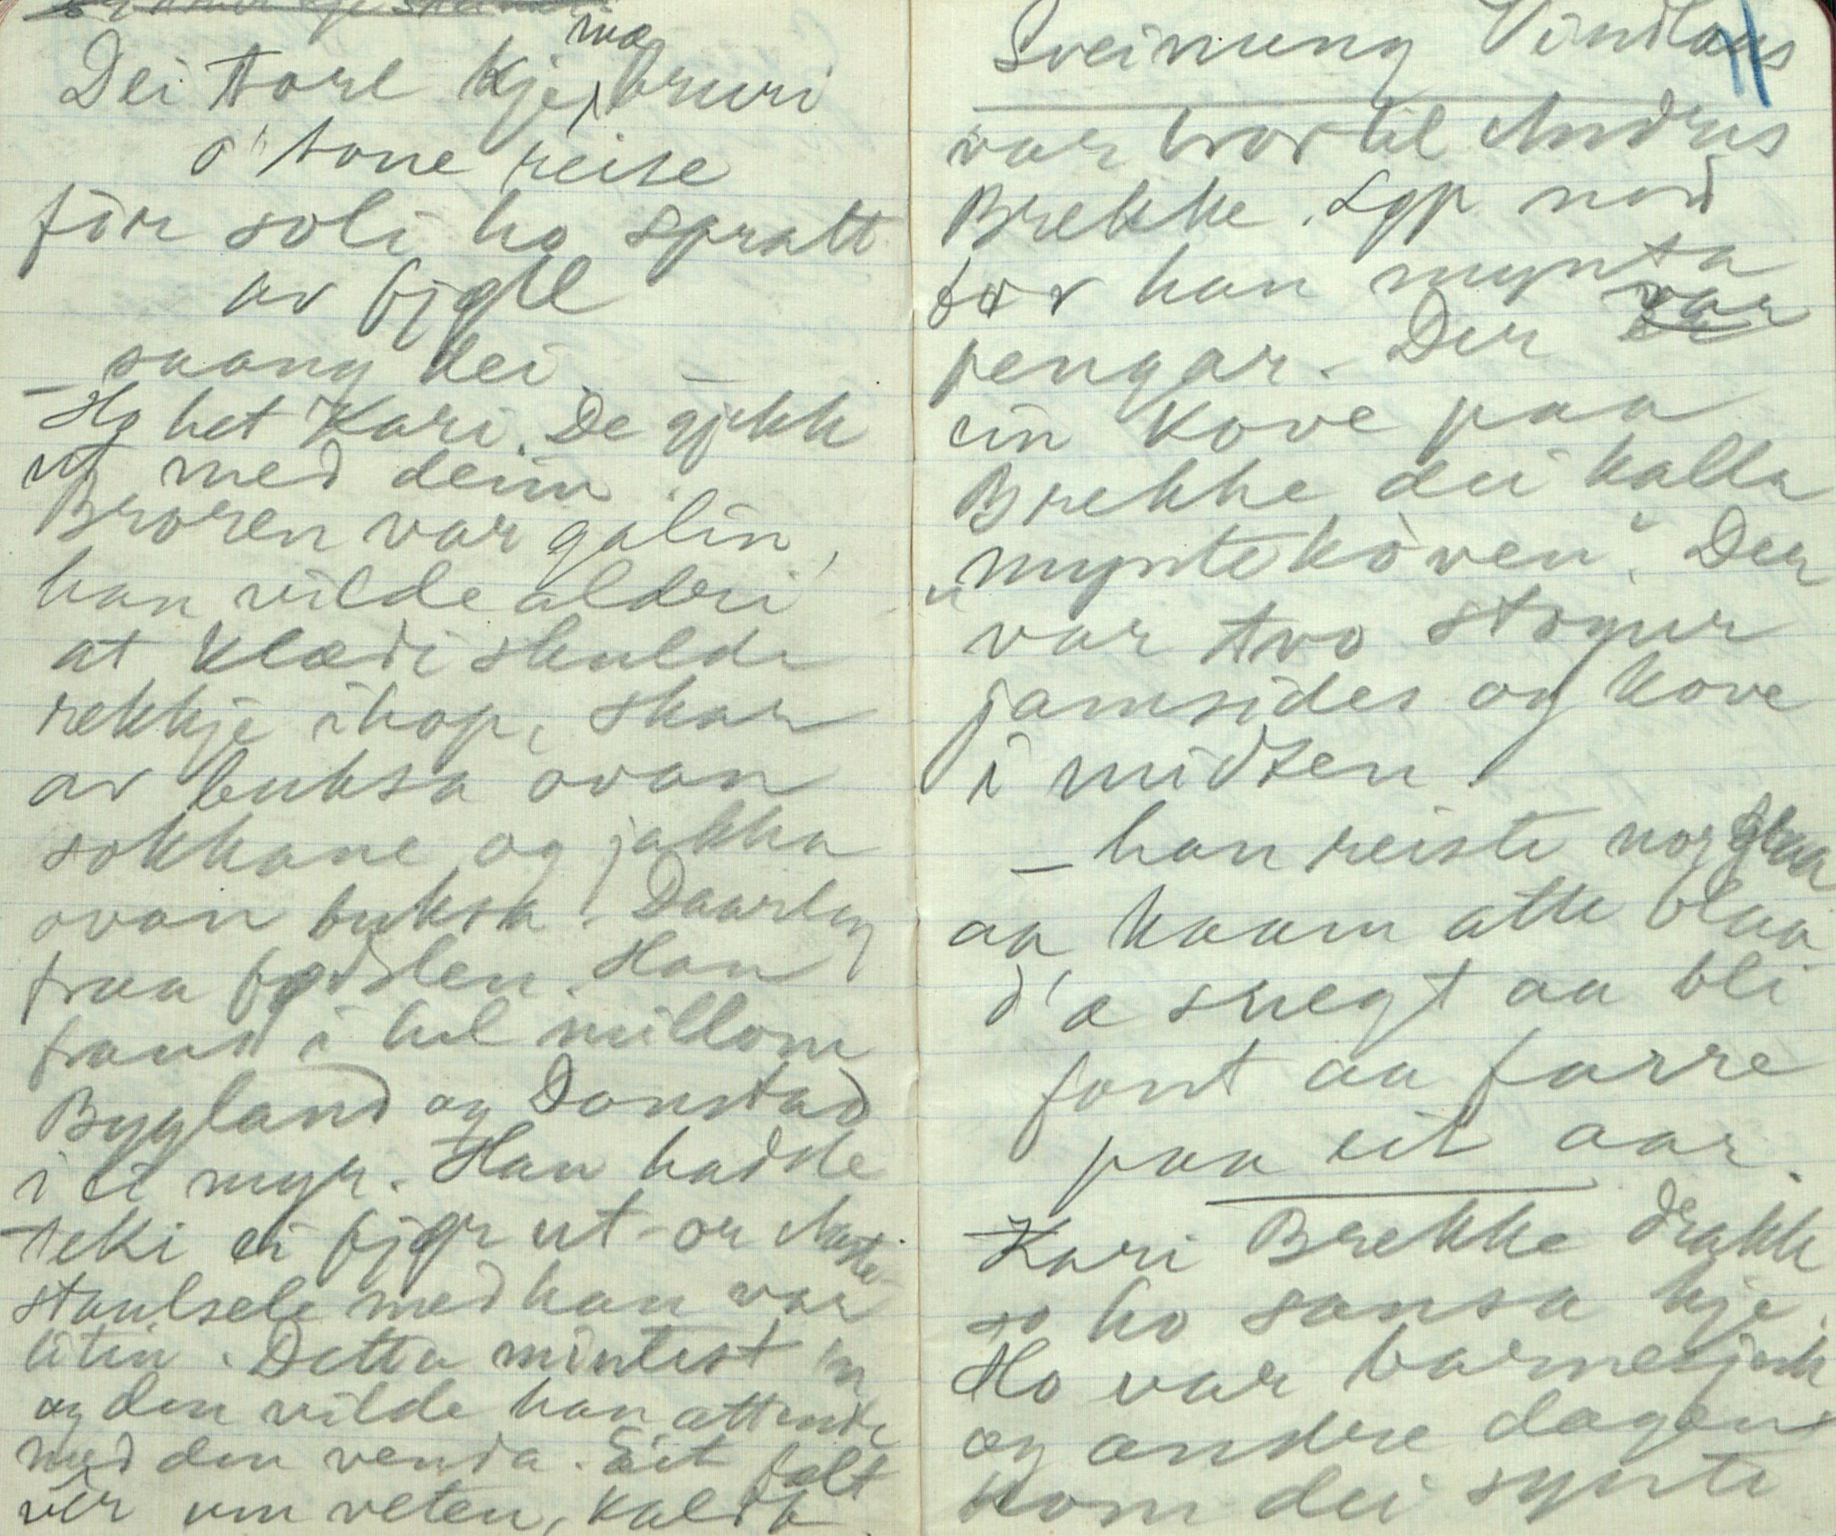 Dei torl kje mæ bruri
o' tone reise
fyrr soli ho spratt
av fjøll
saang dei. —
— Ho het Kari. De gjekk
ut med deim.
Broren var galin,
han vilde alderi
at klædi skulde
rekkje ihop, skar
av buksa ovan
sokkane og jakka
ovan buksa. Daarleg
fraa fødslen. Han
fraus i hel millom
Bygland og Donstad
i ei myr. Han hadde
teki ei fjør ut or
staulsele med han var
liten. Detta mintest 'n
og den vilde han attende
med den venda. Eit falt
vér um veten, kaldt
11
Sveinung Vindlaus
var bror til Andres
Brekke. Lgp nord
for han mynta
pengar. Der var
ein kove paa
Brekke dei kalla
"myntekoven". Der
var tvo stogur
jamsides og kove
i midten.
— han reiste norg graa
aa kaam atte blaa
d'æ snegt aa bli
font aa farre
paa eit aar.
Kari Brekke drakk
so ho sansa kje.
Ho var barnesjuk
og andre dagen
kom dei synte